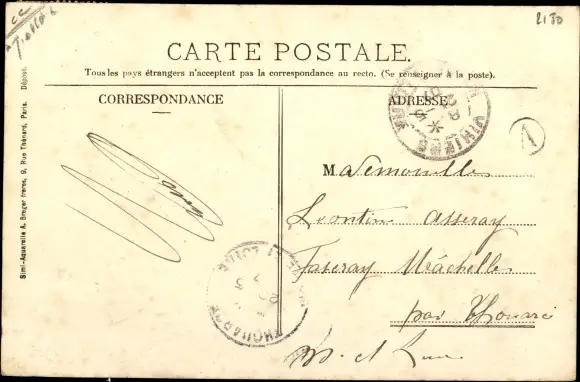 2130
CARTE POSTALE.
Tous les pays étrangers n'acceptent pas la correspondance au recto. (Se renseigner à la poste).
CORRESPONDANCE
ADRESSE
Simi-Aquarelle A. Breger frères, 9, Rue Thénard, Paris. Déposé.
VIHIERS
A
Mademoiselle
Leontine Asseray
par Thouarcé
M. et Loire
THOUARCÉ
ET LOIRE